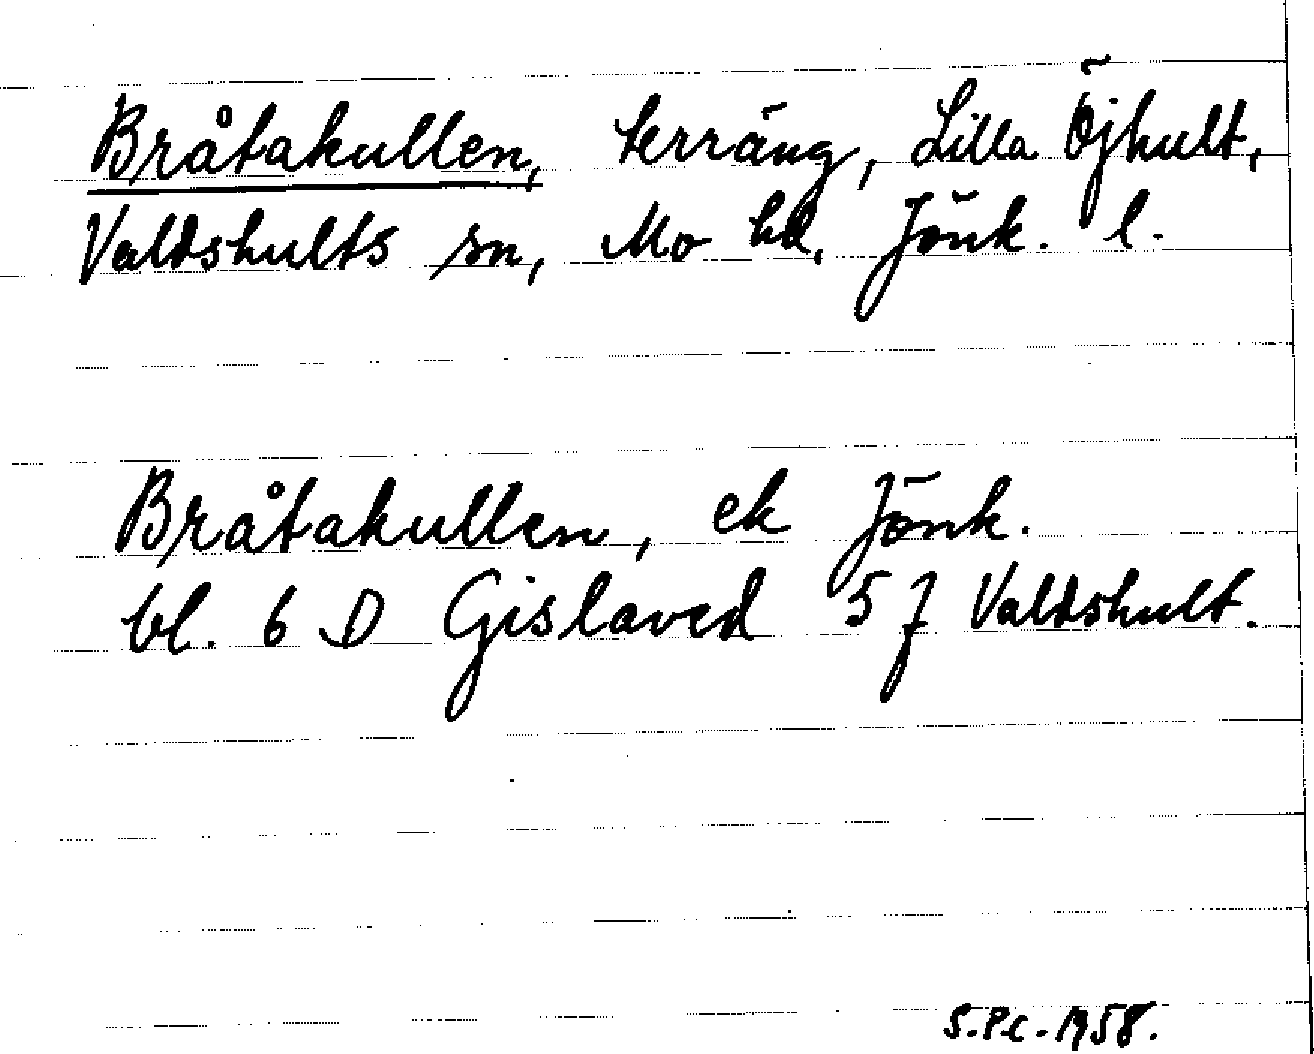 Bråtakullen, terräng, Lilla Öjhult,
Valdshults sn, Mo hd, Jönk. l.
Bråtakullen, ek Jönk.
bl. 6 D Gislaved 5 j Valdshult.
S.P.C. 1958.